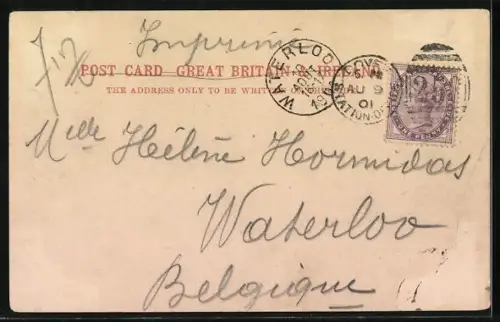 Imprimé
POST CARD GREAT BRITAIN & IRELAND
THE ADDRESS ONLY TO BE WRITTEN
WATERLOO
10
AOUT
1901
AU 9
01
STATION
Melle Hélène Hormidas
Waterloo
Belgique